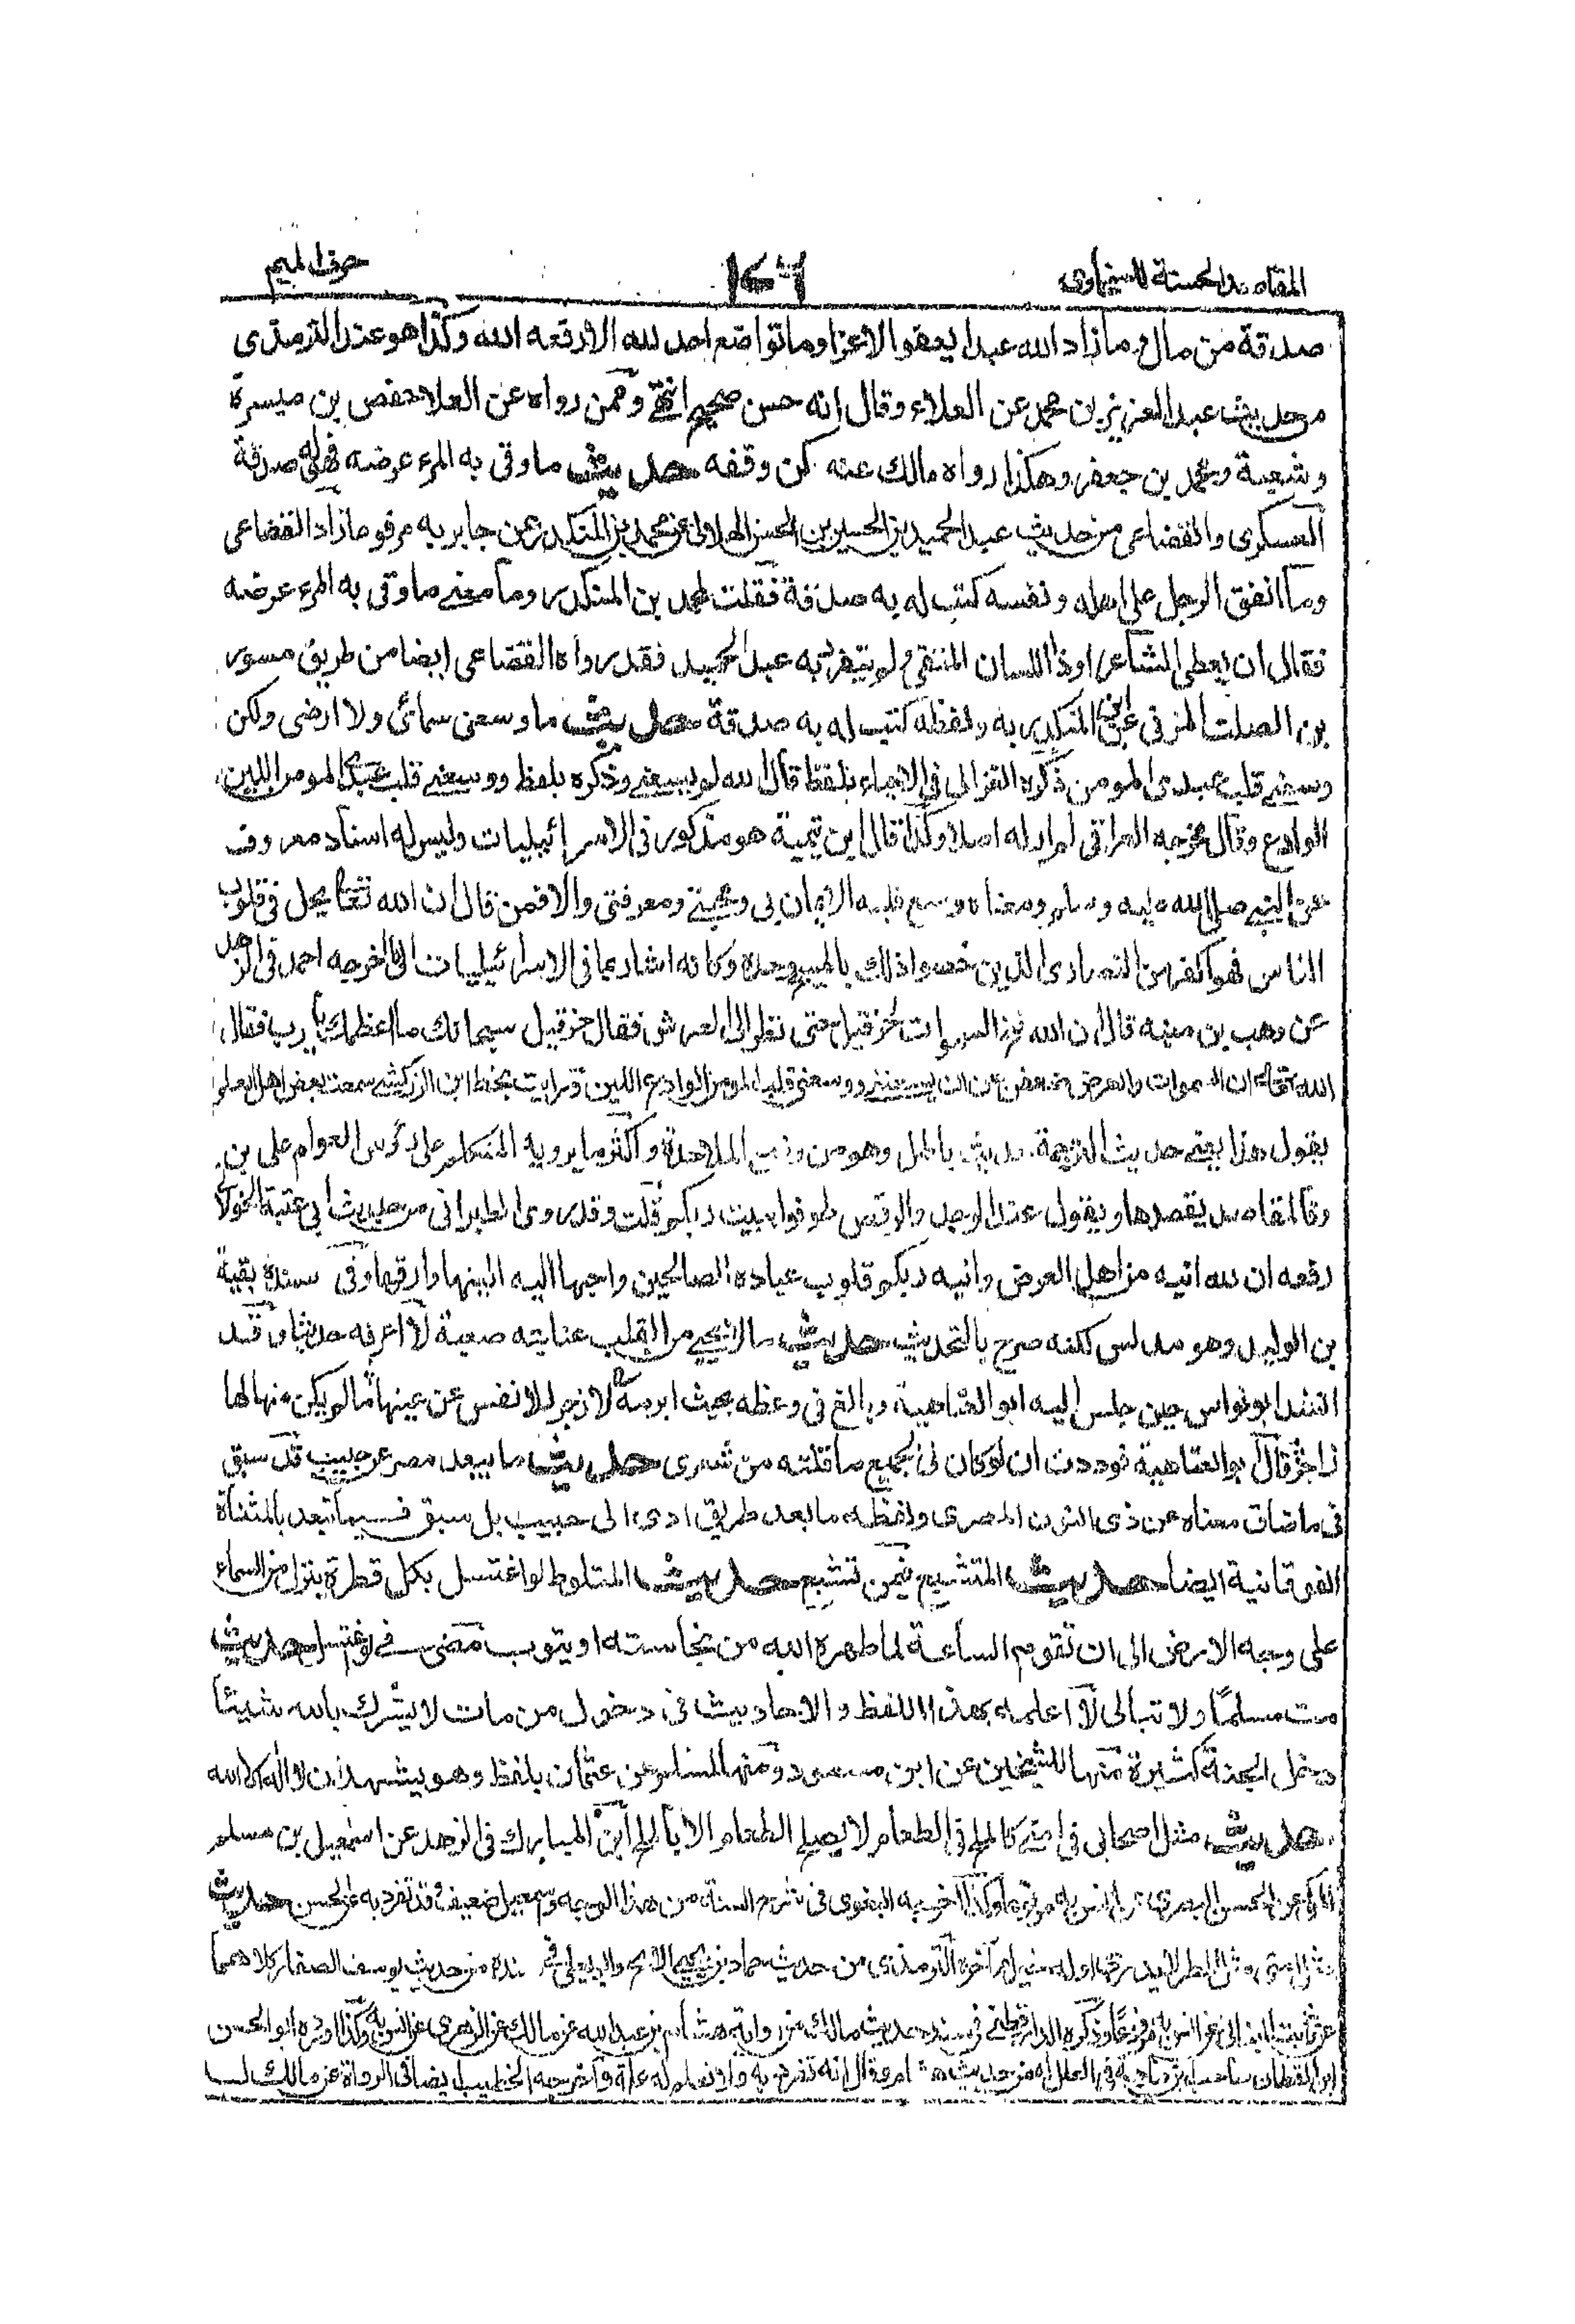 المقاصد الحسنة للسخاوى
حرف الميم
صدقة من مال وما زاد الله عبدا يعفو الا عزا وما تواضع احد لله الا رفعه الله وكذا هو عند الترمذى
من حديث عبد العزيز بن محمد عن العلاء وقال انه حسن صحيح انتهى وممن رواه عن العلاء حفص بن ميسرة
وشعبة ومحمد بن جعفر وهكذا رواه مالك عنه لكن وقفه حديث ما وقى به المرء عرضه فهو له صدقة
العسكرى والقضاعى من حديث عبد الحميد بن الحسن الهلالى عن محمد بن المنكدر عن جابر به مرفوعا زاد القضاعى
وما انفق الرجل على اهله ونفسه كتب له به صدقة فقلت لمحمد بن المنكدر وما معنى ما وقى به المرء عرضه
فقال ان يعطى الشاعر او ذا اللسان المتقى ولم يتفرد به عبد الحميد فقد رواه القضاعى ايضا من طريق مسور
بن الصلت المزنى عن ابن المنكدر به ولفظه كتب له به صدقة حديث ما وسعنى سمائى ولا ارضى ولكن
وسعنى قلب عبدى المومن ذكره الغزالى فى الاحياء بلفظ قال الله لم يسعنى وذكره بلفظ ووسعنى قلب عبدى المومن اللين
الوادع وقال مخرجه العراقى لم ار له اصلا وكذا قال ابن تيمية هو مذكور فى الاسرائيليات وليس له اسناد معروف
عن النبى صلى الله عليه وسلم ومعناه وسع قلبه الايمان بى ومحبتى ومعرفتى والا فمن قال ان الله تعالى يحل فى قلوب
الناس فهو اكفر من النصارى الذين خصوا ذلك بالمسيح وحده وكانه اشار بما فى الاسرائيليات الى ما اخرجه احمد فى الزهد
عن وهب بن منبه قال ان الله فتح السموات لحزقيل حتى نظر الى العرش فقال حزقيل سبحانك ما اعظمك يا رب فقال
الله تعالى ان السموات والعرش ضعفن عن ان يسعننى ووسعنى قلب المومن الوادع اللين ورايت بخط ابن الزركشى سمعت بعض اهل العلم
يقول هذا يعنى حديث الترجمة حديث باطل وهو من وضع الملاحدة واكثر ما يرويه المتكلم على رؤس العوام على بن
وفا لمقاصد يقصدها ويقول عند الوجد والرقص طوفوا ببيت ربكم قلت وقد روى الطبرانى من حديث ابى عتبة الخولا
رفعه ان لله انية من اهل الارض وانية ربكم قلوب عباده الصالحين واحبها اليه الينها وارقها وفى سنده بقية
بن الوليد وهو مدلس لكنه صرح بالتحديث حديث ما لا يجئ من القلب عنايته صعبة لا اعرفه حديثا وقد
انشد ابو نواس حين جلس اليه ابو العتاهية وبالغ فى وعظه بحيث ابرمه لا تزجر الانفس عن غيها ما لم يكن منها لها
زاجر قال ابو العتاهية فوددت ان لو كان لى بجميع ما قلته من شعرى حديث ما يبعد مصر عن حبيب قد سبق
فى ما ضاق معناه عن ذى النون المصرى ولفظه ما بعد طريق ادى الى حبيب بل سبق فيما تبعد بالمثناة
الفوقانية ايضا حديث المتشبع فيمن تشبع حديث المتلوط لو اغتسل بكل قطرة ينزل من السماء
على وجه الارض الى ان تقوم الساعة لما طهره الله من نجاسته او يتوب مضى فى لو اغتسل حديث
مت مسلما ولا تبالى لا اعلمه بهذا اللفظ والاحاديث فى دخول من مات لا يشرك بالله شيئا
دخل الجنة كثيرة منها للشيخين عن ابن مسعود ومنها لمسلم عن عثمان بلفظ وهو يشهد ان لا اله الا الله
حديث مثل اصحابى فى امتى كالملح فى الطعام لا يصلح الطعام الا بالملح ابن المبارك فى الزهد عن اسمعيل بن مسلم
المكى عن الحسن البصرى عن انس به مرفوعا وكذا اخرجه البغوى فى شرح السنة من هذا الوجه واسمعيل ضعيف وقد تفرد به عن الحسن حديث
مثل امتى مثل المطر لا يدرى اوله خير ام اخره الترمذى من حديث حماد بن يحيى الابح وابو يعلى فى مسنده من حديث يوسف الصفار كلاهما
عن ثابت البنانى عن انس به مرفوعا وذكره الدارقطنى فى سند حديث مالك من رواية هشام بن عبيد الله عن مالك عن الزهرى عن انس به وكذا اورده ابو الحسن
ابن القطان فى العلل له من حديث هشام وقال انه تفرد به ولا نعلم له علة واخرجه الخطيب ايضا فى الرواة عن مالك